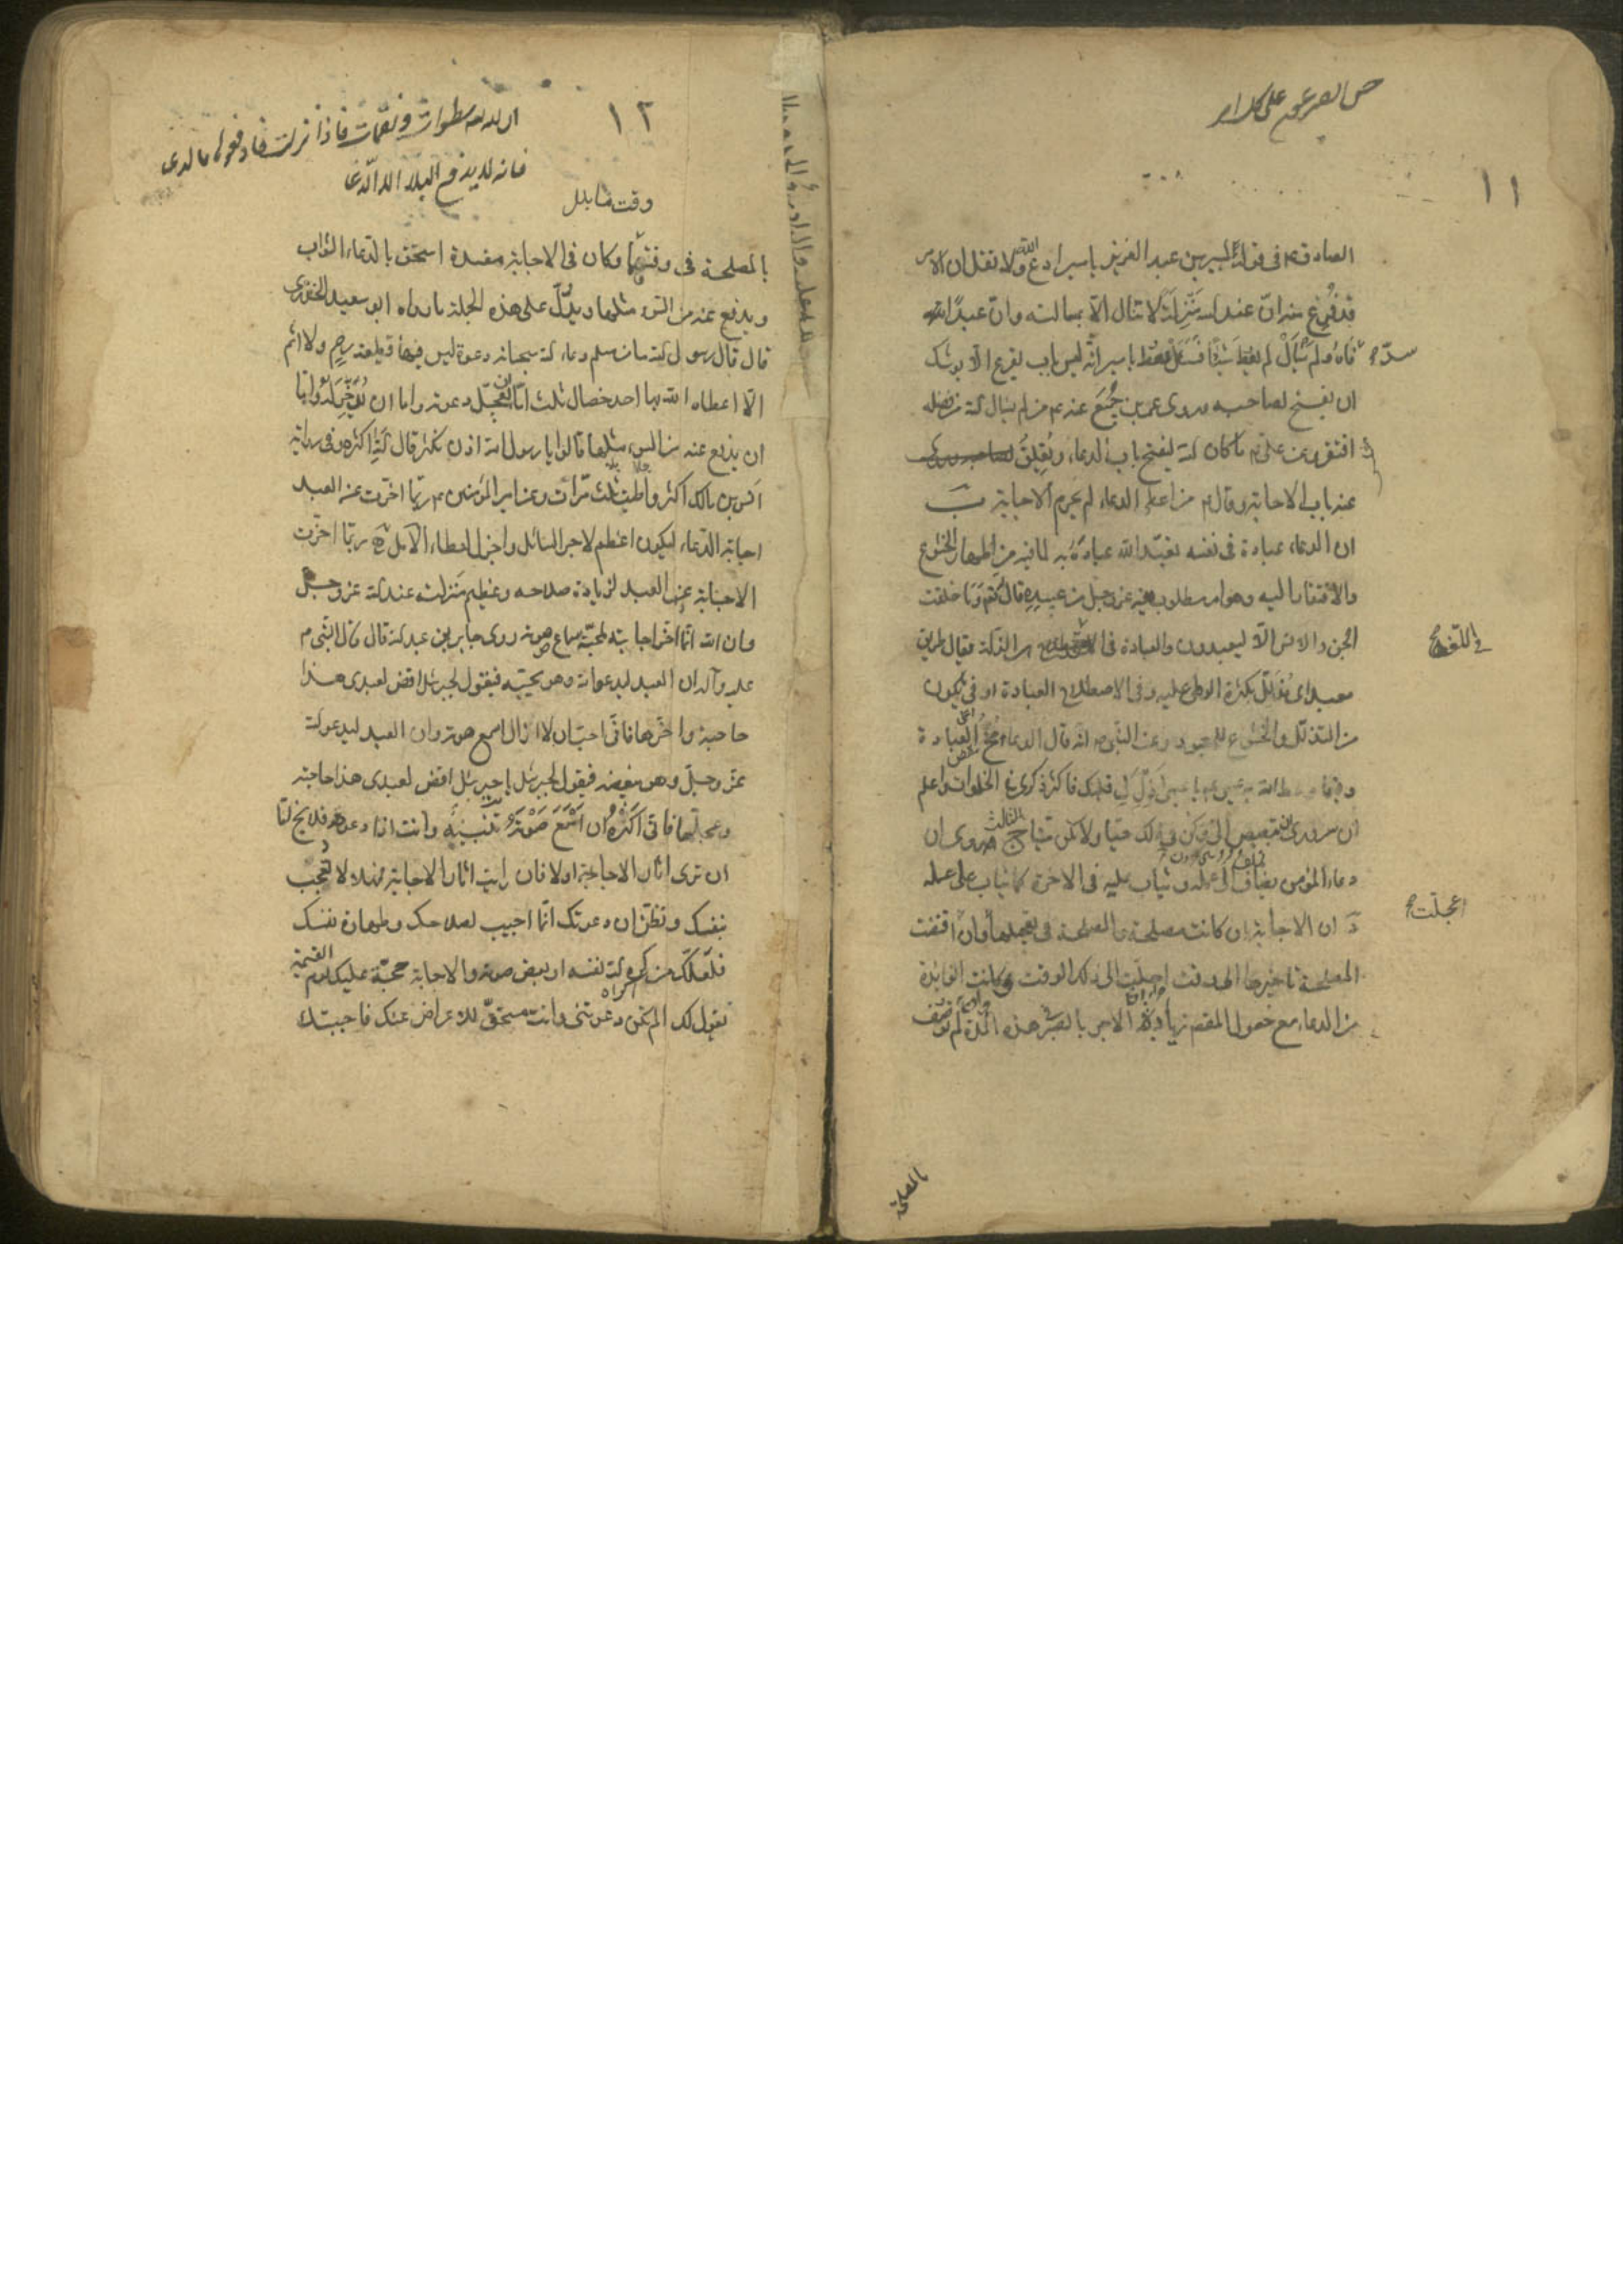 ١١
الصادق ع في قوله لميسر بن عبد العزيز يا ميسر ادع الله ولا تقل ان الامر
قد فُرغ منه ان عند الله مَنْزِلَةً لا تنال الا بمسالته وان عبدًا
فَاهُ ولم يَسْأَلْ لم يعْطَ شَيْئًا فَسَلْ تُعْطَ يا ميسر انه ليس باب يقرع الا يوشك
سدّ
ان يفتح لصاحبه وروى عمرو بن جُمَيع عنه ع من لم يسال الله من فضله
افتقر وعن علي ع ما كان الله ليفتح باب الدعاء ويُغلِقُ
عنه باب الاجابة وقال ع من اعطي الدعاء لم يحرم الاجابة ب
ان الدعاء عبادة في نفسه تعبّد الله عباده به لما فيه من اظهار الخشوع
والافتقار اليه وهو امر مطلوب منه عز وجل من عبيده قال الله تعم وَمَا خلقت
الجن والانس الا ليعبدون والعبادة في هي الذلة يقال طريق
في اللّغة
معبد اي مُذَلّل بكثرة الوطي عليه وفي الاصطلاح العبادة اوفى ما يكون
من التذلل والخشوع للمعبود وعن النبي ص انه قال الدعاء مُخّ الْعبادة
وفيما وعظ الله به عيسى ع يا عيسى اَذِلَّ لي قلبك فاكثر ذكري في الخلوات واعلم
ان سروري ان تبصبص الي وكن في ذلك حيا ولا تكن ميتا ج الثالث روى ان
دعاء المؤمن يضاف الى عمله ويثاب عليه في الاخرة كما يثاب على عمله
د ان الاجابة ان كانت مصلحة والمصلحة في تعجيلها وان اقتضت
عجلت
المصلحة تاخيرها الى وقت اجلت الى ذلك الوقت وكانت الفايدة
من الدعاء مع حصول المقصود زيادة الاجر بالصبر هذه المدة لم توصف
بالمصلحة
١٢
ان لله سطوات ونقمات فاذا نزلت فادفعوها بالدعا
فانه لا يدفع البلاء الا الدّعا
وقت ما
بالمصلحة في وقت ما وكان في الاجابة مفسدة استحق بالدعاء الثواب
ويدفع عنه من السوء مثلها ويدُلّ على هذه الجملة ما رواه ابو سعيد الخدري
قال قال رسول الله ما من مسلم دعا الله سبحانه دعوة ليس فيها قطيعة رحِمٍ ولا اثم
الا اعطاه الله بها احد خصال ثلث اما ان يُعجّل دعوته واما ان يُؤَخِّرَ لَهُ واما
ان يدفع عنه من السوء مثلها قالوا يا رسول الله اذن نكثر قال اللهُ اكثر وفي رواية
انس بن مالك اكثر واطيب ثلث مرّات وعن امير المؤمنين ع ربّما اخّرت عن العبد
اجابة الدعاء ليكون اعظم لاجر السائل واجزل لعطاء الآمل ه ربّما اخّرت
الاجابة عن العبد لزيادة صلاحه وعظيم منزلته عند الله عز وجل
وان الله انّما اخّر اجابته لمحبّة سماع صوته روى جابر بن عبد الله قال قال النبي ص
عليه وآله ان العبد ليدعو الله وهو يحبّه فيقول لجبرئيل اقض لعبدي هذا
حاجته واخّرها فانّي احبّ ان لا ازال اسمع صوته وان العبد ليدعو الله
عز وجلّ وهو يبغضه فيقول لجبرئيل يا جبرئيل اقض لعبدي هذا حاجته
وعجّلها فانّي اكْرَهُ ان اَسْمَعَ صَوْتَهُ تَنْبِيْهٌ وانت اذا دعوت فلا يخ لنا
ان ترى اثار الاجابة اولا فان رايت اثار الاجابة فمهلا لا تعجب
بنفسك وتظنّ ان دعوتك انّما اجيب لصلاحك وطهارة نفسك
فلَعَلّك ممن كره الله نفسه او بغض صوته والاجابة حجّة عليك يوم القيمة
يقول لك الم تكن دعوتني وانت مستحقّ للاعراض عنك فاجبتك